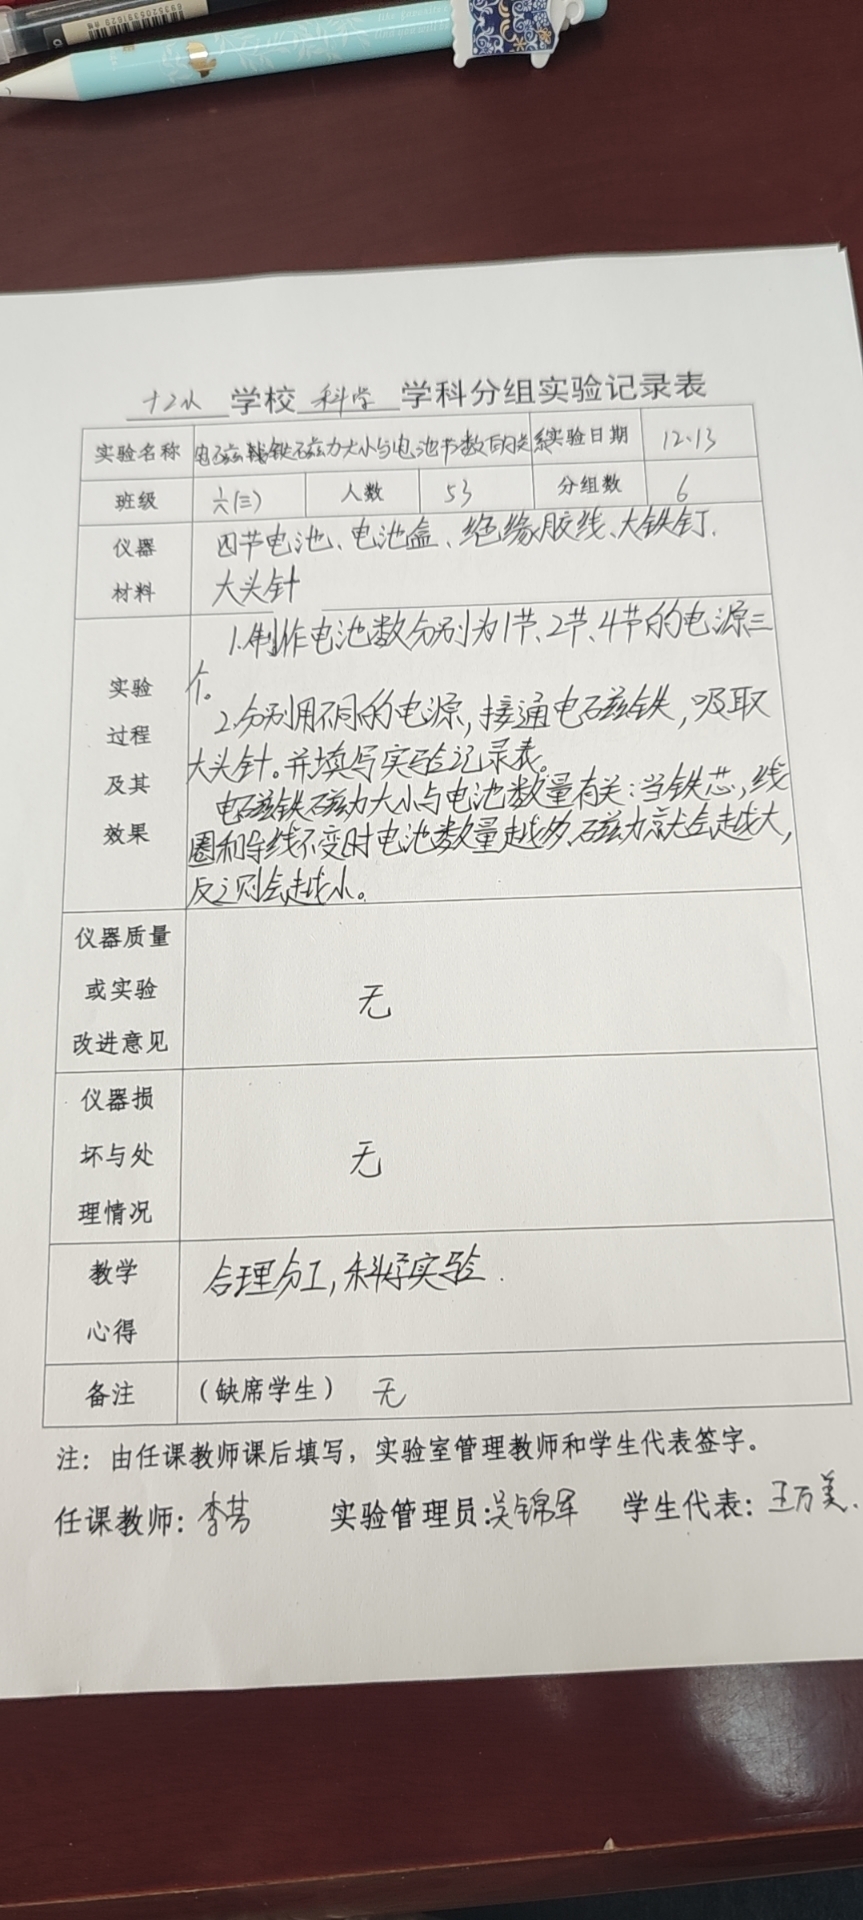 十二小学校科学学科分组实验记录表
实验名称 电磁铁磁力大小与电池节数的关系 实验日期 12.13
班级 六(三) 人数 53 分组数 6
仪器材料 四节电池、电池盒、绝缘胶线、大铁钉、
大头针
实验过程及其效果
1.制作电池数分别为1节、2节、4节的电源三
个。
2.分别用不同的电源,接通电磁铁,吸取
大头针。并填写实验记录表。
电磁铁磁力大小与电池数量有关:当铁芯,线
圈和导线不变时电池数量越多,磁力会越大,
反之则会越小。
仪器质量或实验改进意见 无
仪器损坏与处理情况 无
教学心得 合理分工,科学实验.
备注 (缺席学生) 无
注:由任课教师课后填写,实验室管理教师和学生代表签字。
任课教师:李芸 实验管理员:吴锦军 学生代表:王万美.